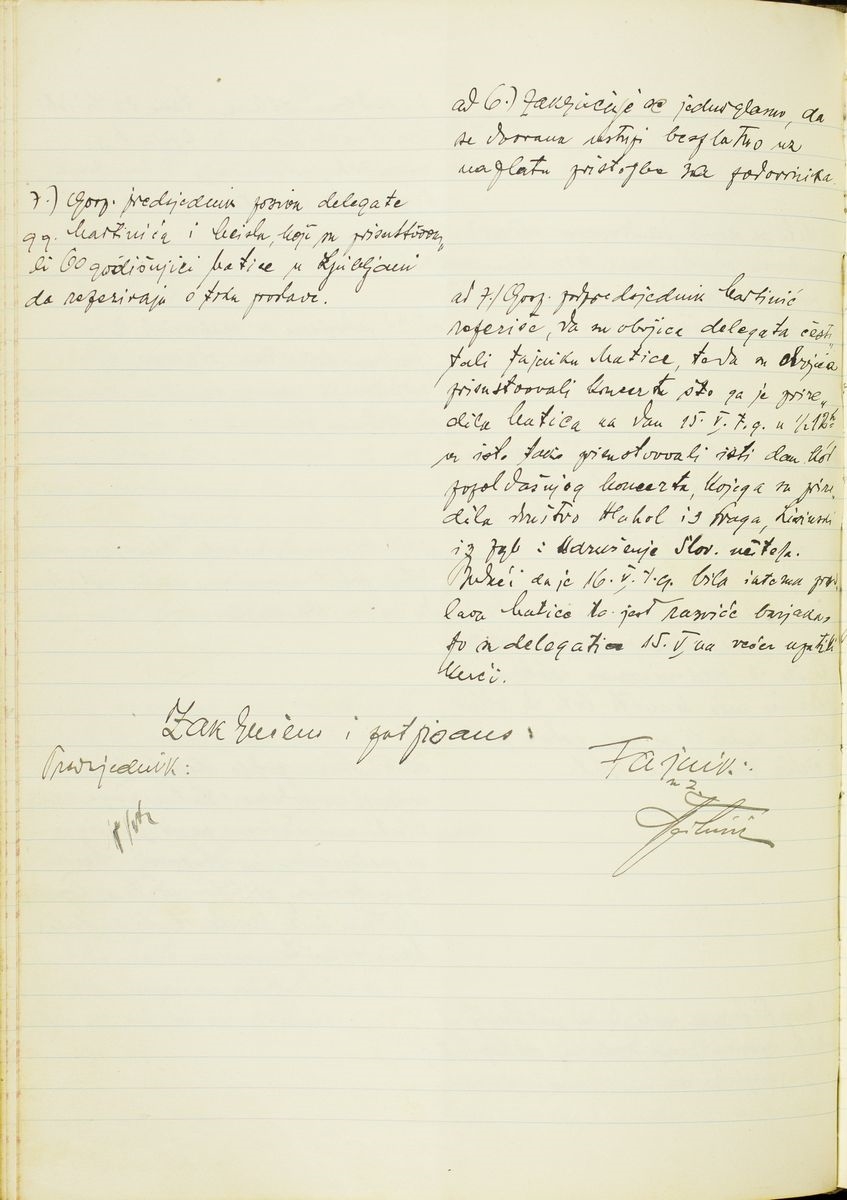 ad 6.) Zaključuje se jednoglasno, da
se dvorana ustupi besplatno uz
naplatu pristojbe za podvornika.
7.) Gosp. predsjednik poziva delegate
gg. Martinića i Meisla, koji su prisustvova„
li 60 godišnjici Matice u Ljubljani
da referiraju o toku proslave.
ad 7.) Gosp. podpredsjednik Martinić
referiše, da su obojica delegata česti„
tali tajniku Matice, te da su obojica
prisustvovali koncertu što ga je prire„
dila Matica na dan 15. V. t. g. u ½12h
su isto tako prisustvovali isti dan kod
popoldašnjeg koncerta, kojega su prire„
dila društvo Hlahol iz Praga, Lisinski
iz Zgb i Udruženje Slov. učitelja.
Budući da je 16. V. t. g. bila interna pros
lava Matice to jest razviće barjaka,
to su delegati 15. V. na večer uputili
kući.
Zaključeno i potpisano:
Predsjednik:
Tajnik: